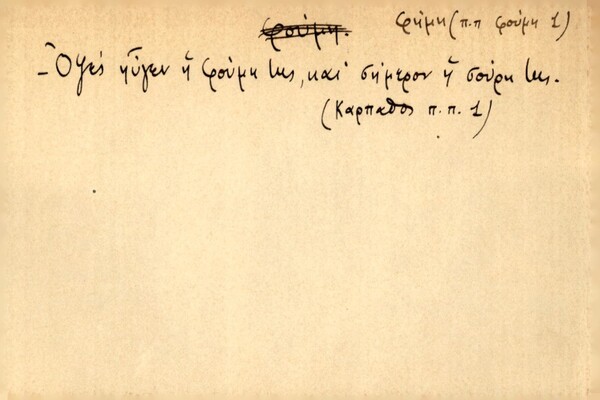 φούμη. φήμη (π.π φούμη 1)
– Ὀψὲς ηὗγεν ἡ φούμη της, καὶ σήμερον ἡ σούρη της.
(Κάρπαθος π.π. 1)